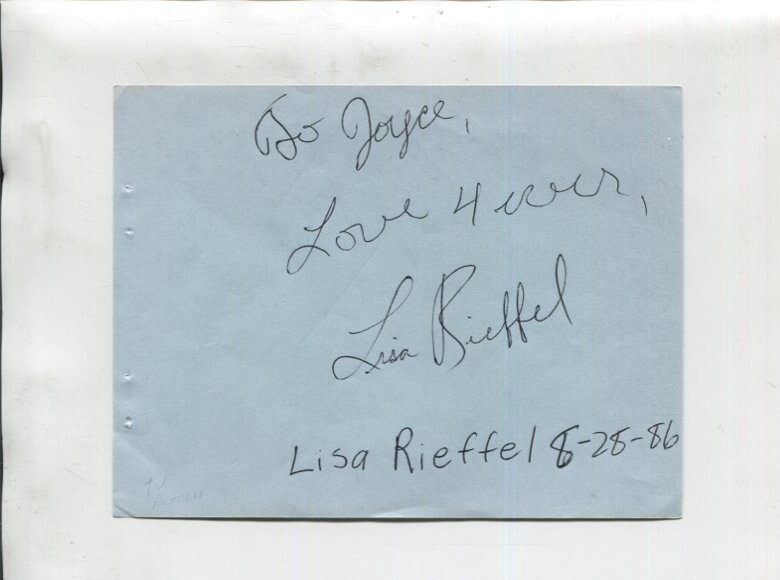 To Joyce,
Love 4 ever,
Lisa Rieffel
Lisa Rieffel 8-28-86